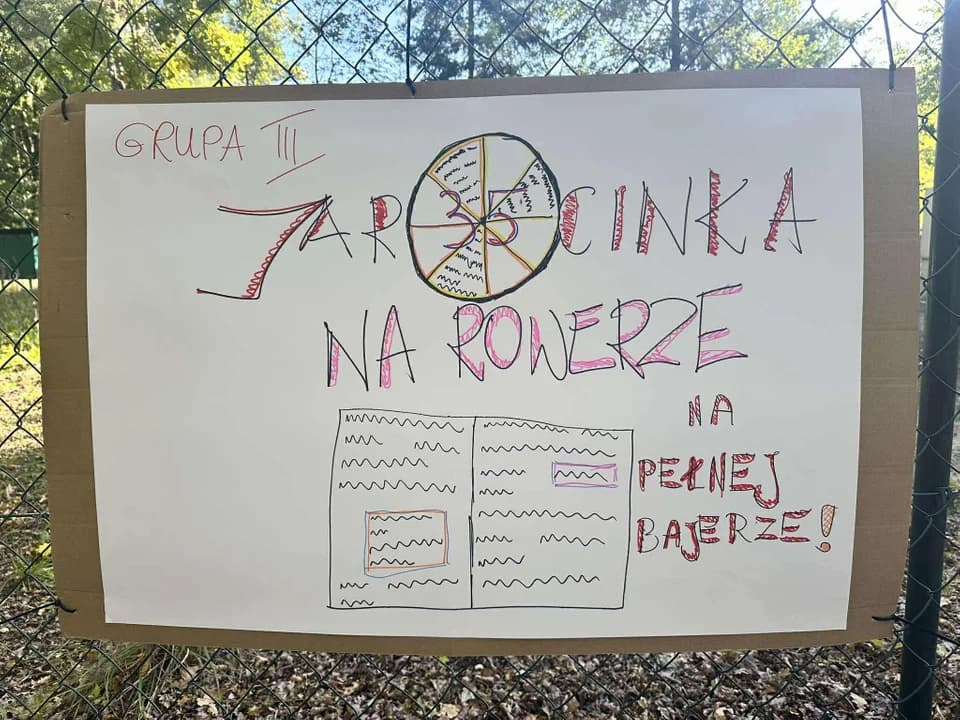 GRUPA III
JAR 35 CINKA
NA ROWERZE
NA
PEŁNEJ
BAJERZE!